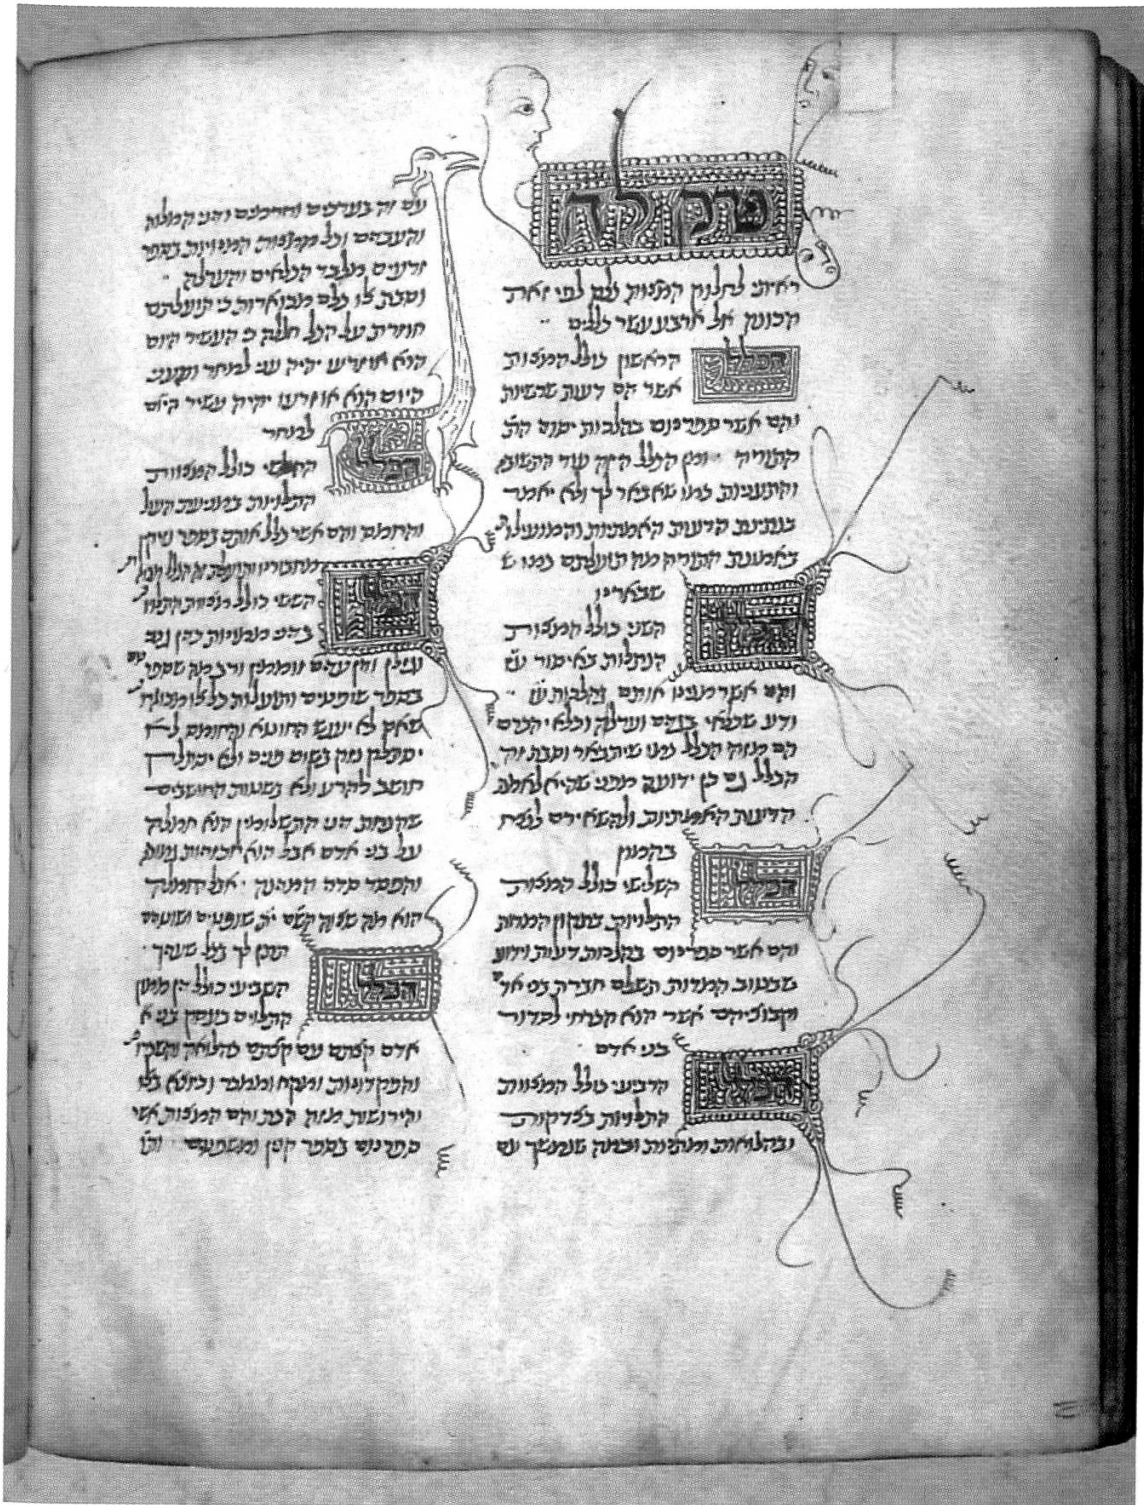 פרק לה
ראיתי לחלוק המצות כלם לפי זאת
הכונה אל ארבע עשר כללים
הכלל הראשון כולל המצות
אשר הם דעות שרשיות
והם אשר ספרנום בהלכות יסודי הת
התורה ומן הכלל הזה עוד התשובה
והתעניות כמו שאבאר לך ולא יאמר
בנתינת הדעות האמתיות והמועילות
באמונת התורה מה תועלתם כמו ש
שבארנו
הכלל השני כולל המצות
הנתלות באיסור ע'ז
והם אשר מנינו אותם בהלכות ע'ז
ודע שכלאי בגדים וערלה וכלאי הכרם
הם מזה הכלל כמו שיתבאר וסבת זה
הכלל גם כן ידועה מפני שהיא לאמת
הדעות האמתיות ולהשאירם לנצח
בהמון
הכלל השלישי כולל המצות
התלויות בתקון המדות
והם אשר ספרנום בהלכות דעות וידוע
שבטוב המדות תשלם חברת בני אד'
וקבוציהם אשר הוא הכרחי לסדור
בני אדם
הכלל הרביעי כולל המצוות
התלויות בצדקות
ובהלואות ומתנות ובמה שנמשך עם
עם זה בערכים וחרמים ודני המלוה
והעבדים וכל המצות המנויות בספר
זרעים מלבד הכלאים והערלה
וסבת אלו כלם מבוארות כי תועלתם
חוזרת על הכל חלילה כי העשיר היום
הוא או זרעו יהיה עני למחר והעני
היום הוא או זרעו יהיה עשיר היום
למחר
הכלל החמשי כולל המצוות
התלויות במניעת העול
והחומס והם אשר כלל אותם בספר נזיקין
מחבורינו ותועלת זה הכלל מבוארת
הכלל הששי כולל מצות התלויו'
בדני ממונות כדין גנב
וגזלן ודין עדים זוממין ורב מה שספר'
בספר שופטים ותועלות כל אלו מבוארת
שאם לא יענש החוטא והחומס לא
יסתלק נזק בשום פנים ולא ימנע
חושב להרע ולא כשגעת החושבים
שהנחת דני התשלומין הוא חמלה
על בני אדם אבל הוא אכזריות גמור
והפסד סדר המדינה אבל החמלה
הוא מה שצוה השם ית' שופטים ושוטרים
תתן לך בכל שעריך
הכלל השביעי כולל דין ממון
התלויים בעסקי בני א
אדם קצתם עם קצתם כהלואה והשכירו'
והפקדונות ומקח וממכר וכיוצא בהן
והירושות מזה הכת והם המצות אשר
ספרנום בספר קנין ומשפטים